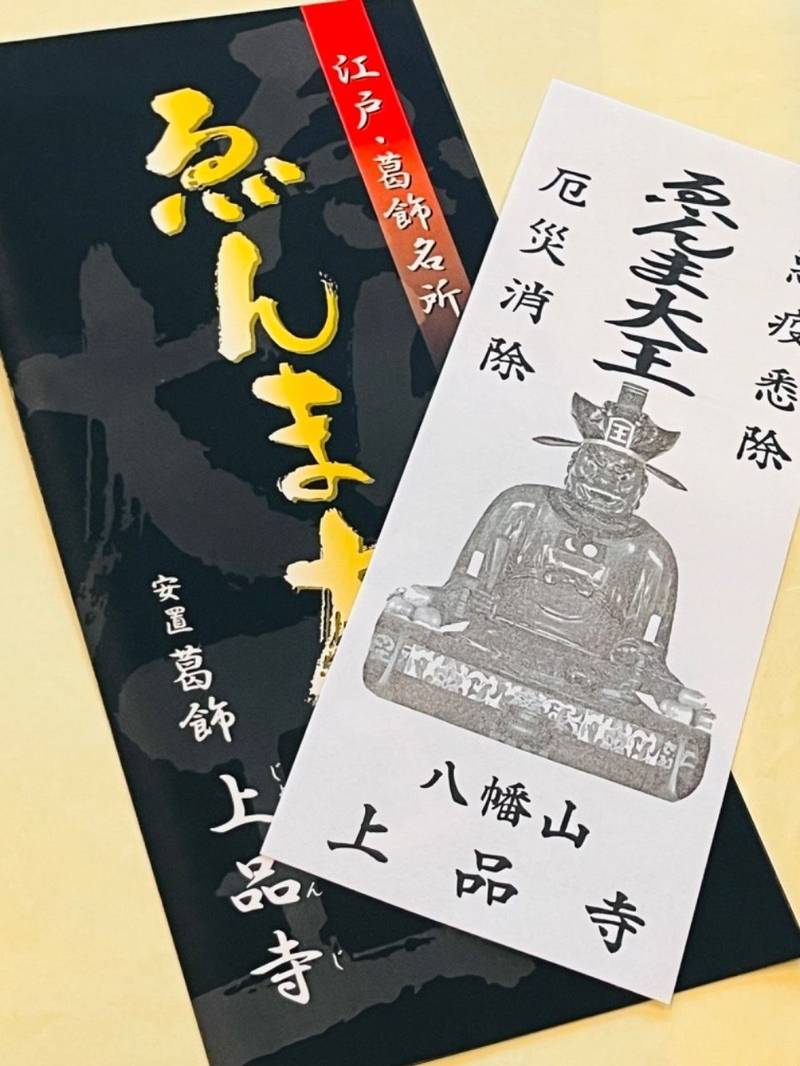 江戸・葛飾名所
ゑんま
安置葛飾
上品寺
んじ
疫悉除
ゑんま大王
厄災消除
王
八幡山
上品寺